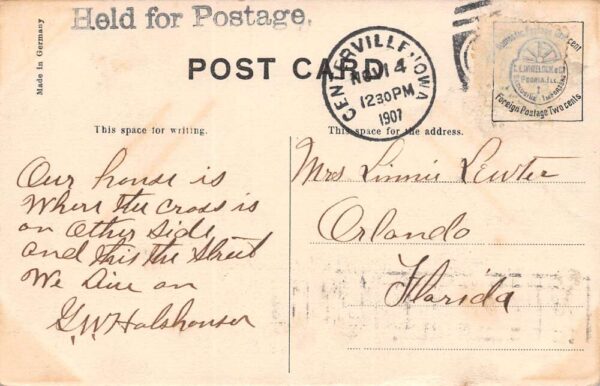 Held for Postage.
Made in Germany
POST CARD
CENTERVILLE, IOWA
NOV 14
12 30 PM
1907
Domestic Postage One cent
PEORIA, ILL.
Foreign Postage Two cents
This space for writing.
This space for the address.
Our house is
Where the cross is
on other side
and this the Street
We live on
G.W. Halshouser
Mrs Linnie Lewter
Orlando
Florida